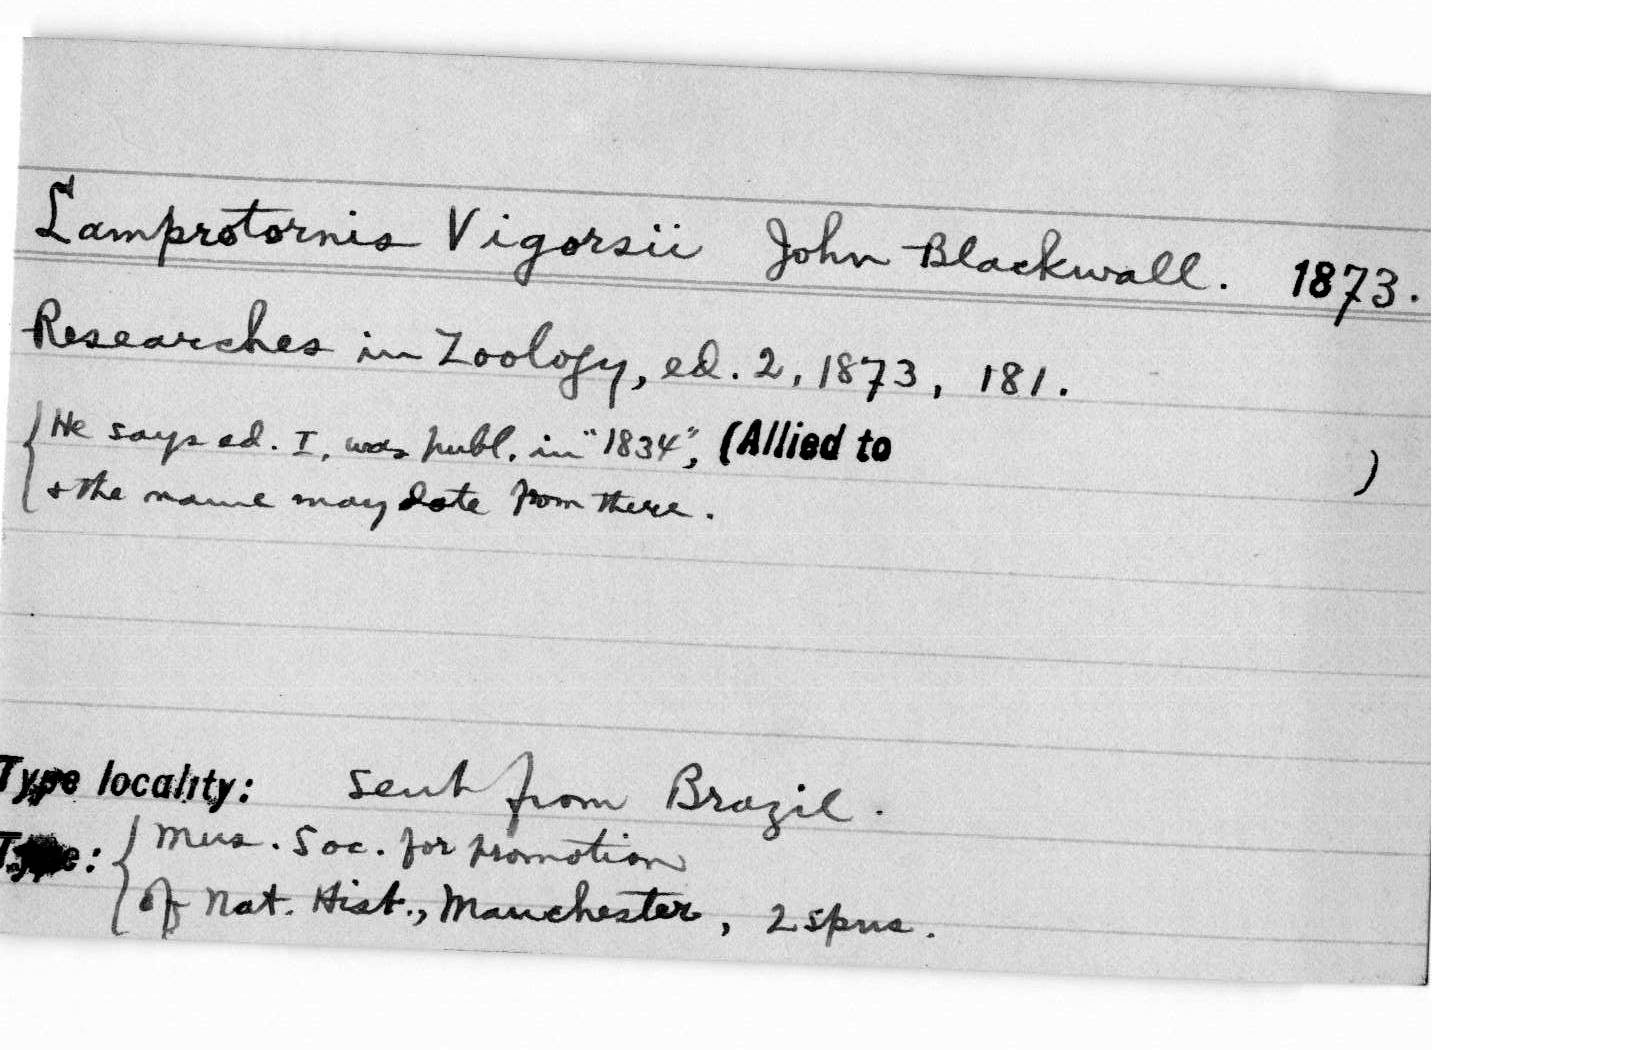 Lamprotornis Vigorsii John Blackwall. 1873.
Researches in Zoology, ed. 2, 1873, 181.
{He says ed. I, was publ. in "1834", (Allied to )
& the name may date from there.
Type locality: sent from Brazil.
Type: {Mus. Soc. for promotion
of Nat. Hist., Manchester, 2 spns.